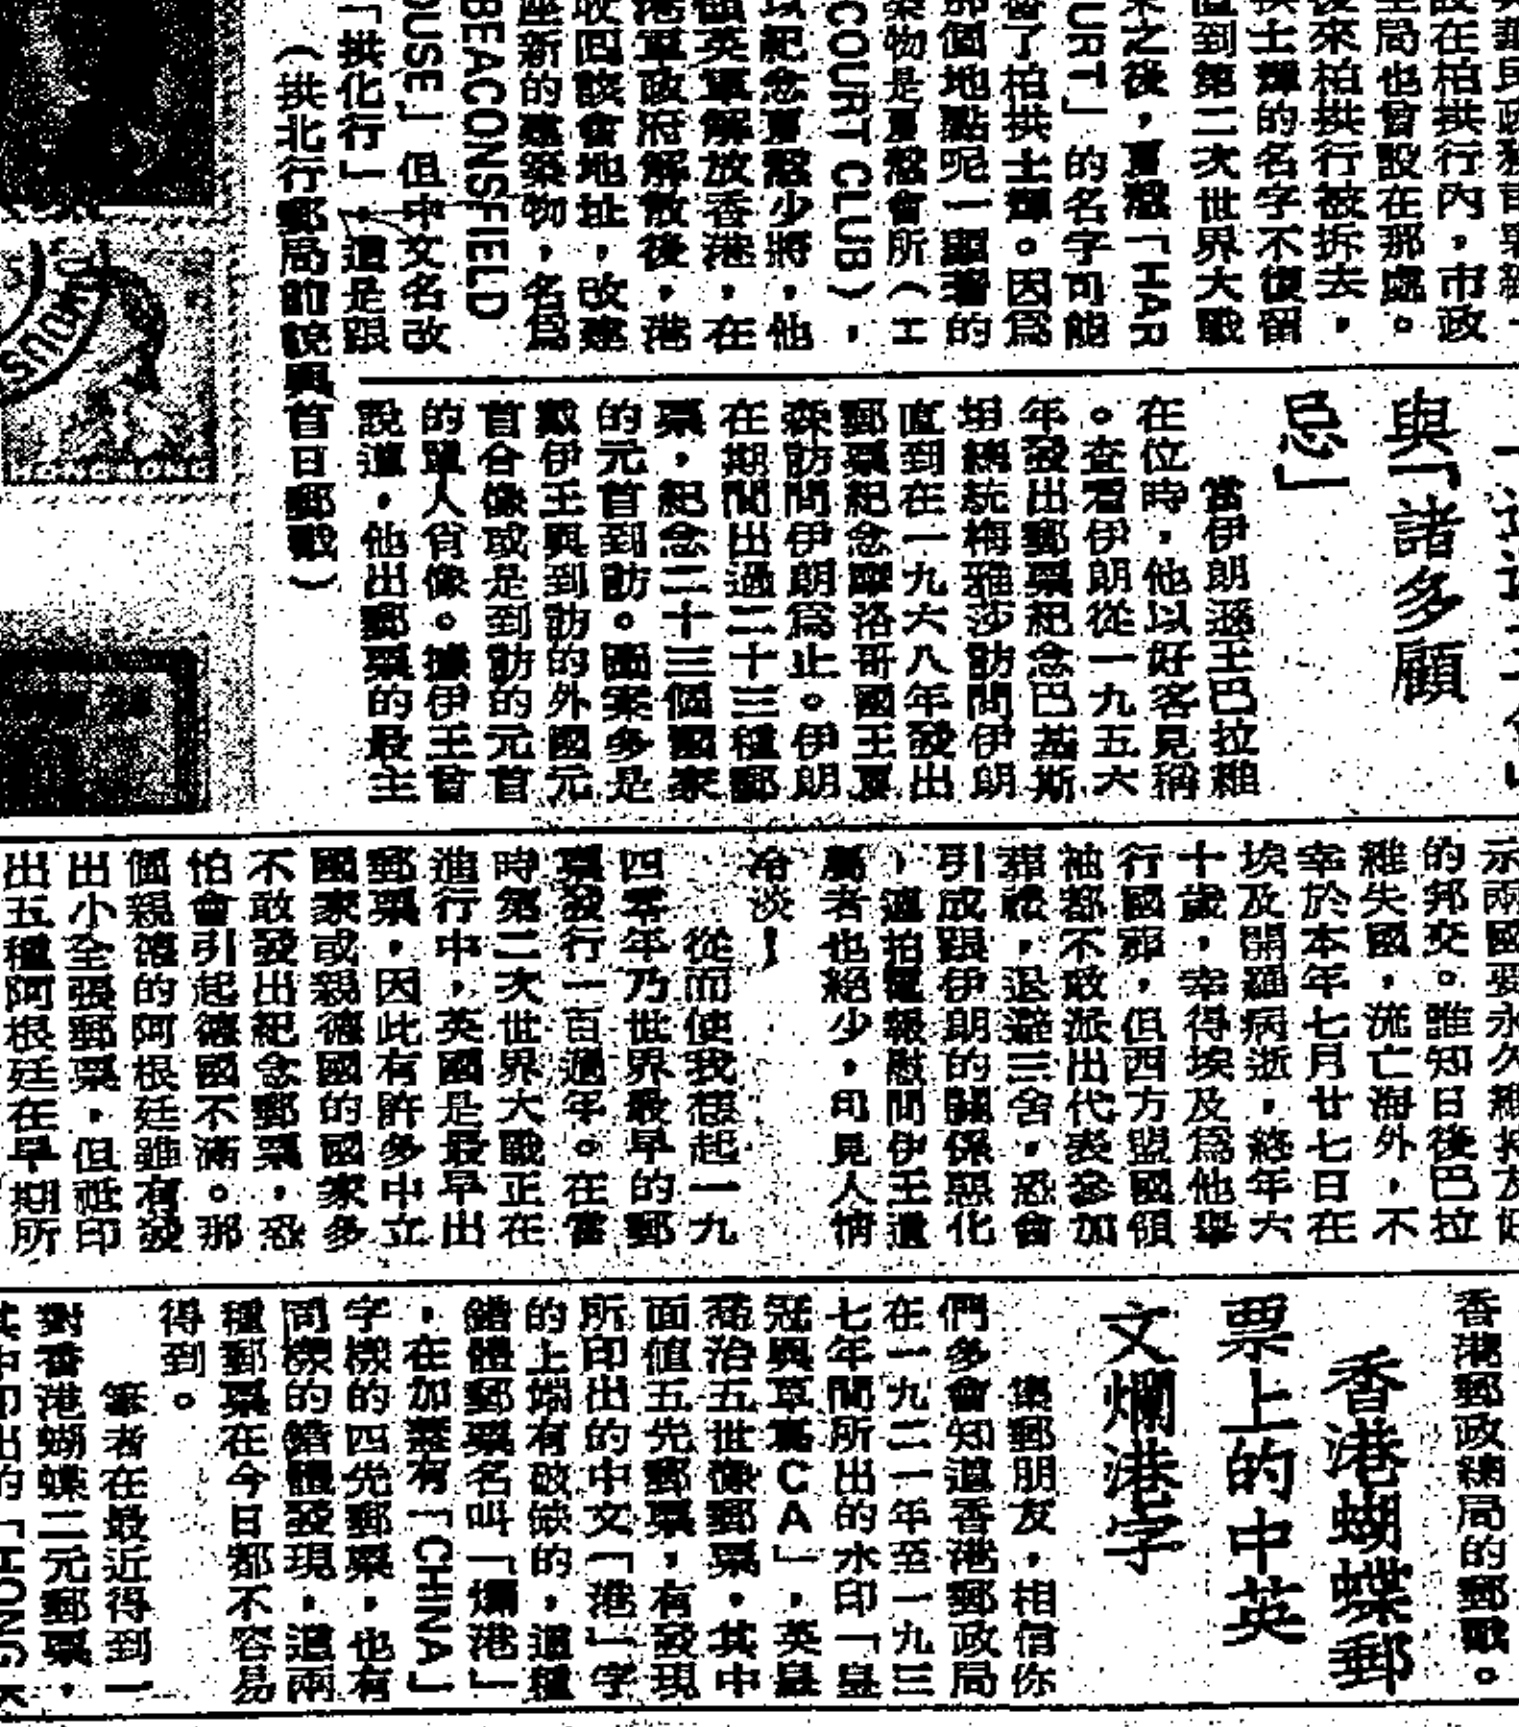 設在柏拱行內，市政
全局也曾設在那處。
後來柏拱行被拆去，
士輝的名字不復留
直到第二次世界大戰
來之後，夏慤「HAR
URT」的名字可能
替了柏拱士輝。因為
那個地點呢一顯著的
築物是夏慤會所（工
COURT CLUB），
以紀念夏慤少將，他
英軍解放香港，在
港軍政府解散後，港
收回該會地址，改建
座新的建築物，名為
BEACONSFIELD
OUSE」但中文名改
「拱化行」，這是跟
（拱北行郵局前貌與首日郵戳）
HONG KONG
與「諸多顧
忌」
當伊朗遜王巴拉維
在位時，他以好客見稱
。查看伊朗從一九五六
年發出郵票紀念巴基斯
坦總統梅雅莎訪問伊朗
直到在一九六八年發出
郵票紀念摩洛哥國王夏
森訪問伊朗為止。伊朗
在期間出過二十三種郵
票，紀念二十三個國家
的元首到訪。圖案多是
戴伊王與到訪的外國元
首合像或是到訪的元首
的單人肖像。據伊王曾
說道，他出郵票的最主
示兩國要永久維持友好
的邦交。誰知日後巴拉
維失國，流亡海外，不
幸於本年七月廿七日在
埃及開羅病逝，終年六
十歲，幸得埃及為他舉
行國葬，但西方盟國領
袖都不敢派出代表參加
葬禮，退避三舍，恐會
引成跟伊朗的關係惡化
，連拍電報慰問伊王遺
屬者也絕少，可見人情
冷淡！
從而使我想起一九
四零年乃世界最早的郵
票發行一百週年。在當
時第二次世界大戰正在
進行中，英國是最早出
郵票，因此有許多中立
國家或親德國的國家多
不敢發出紀念郵票，恐
怕會引起德國不滿。那
個親德的阿根廷雖有發
出小全張郵票，但祇印
出五種阿根廷在早期所
香港郵政總局的郵戳。
香港蝴蝶郵
票上的中英
文爛港字
集郵朋友，相信你
們多會知道香港郵政局
在一九二一年至一九三
七年間所出的水印「皇
冠與草寫CA」，英皇
喬治五世像郵票，其中
面值五先郵票，有發現
所印出的中文「港」字
的上端有破缺的，這種
錯體郵票名叫「爛港」
，在加蓋有「CHINA」
字樣的四先郵票，也有
同樣的錯體發現，這兩
種郵票在今日都不容易
得到。
筆者在最近得到一
對香港蝴蝶二元郵票，
其中印出的「HONG K